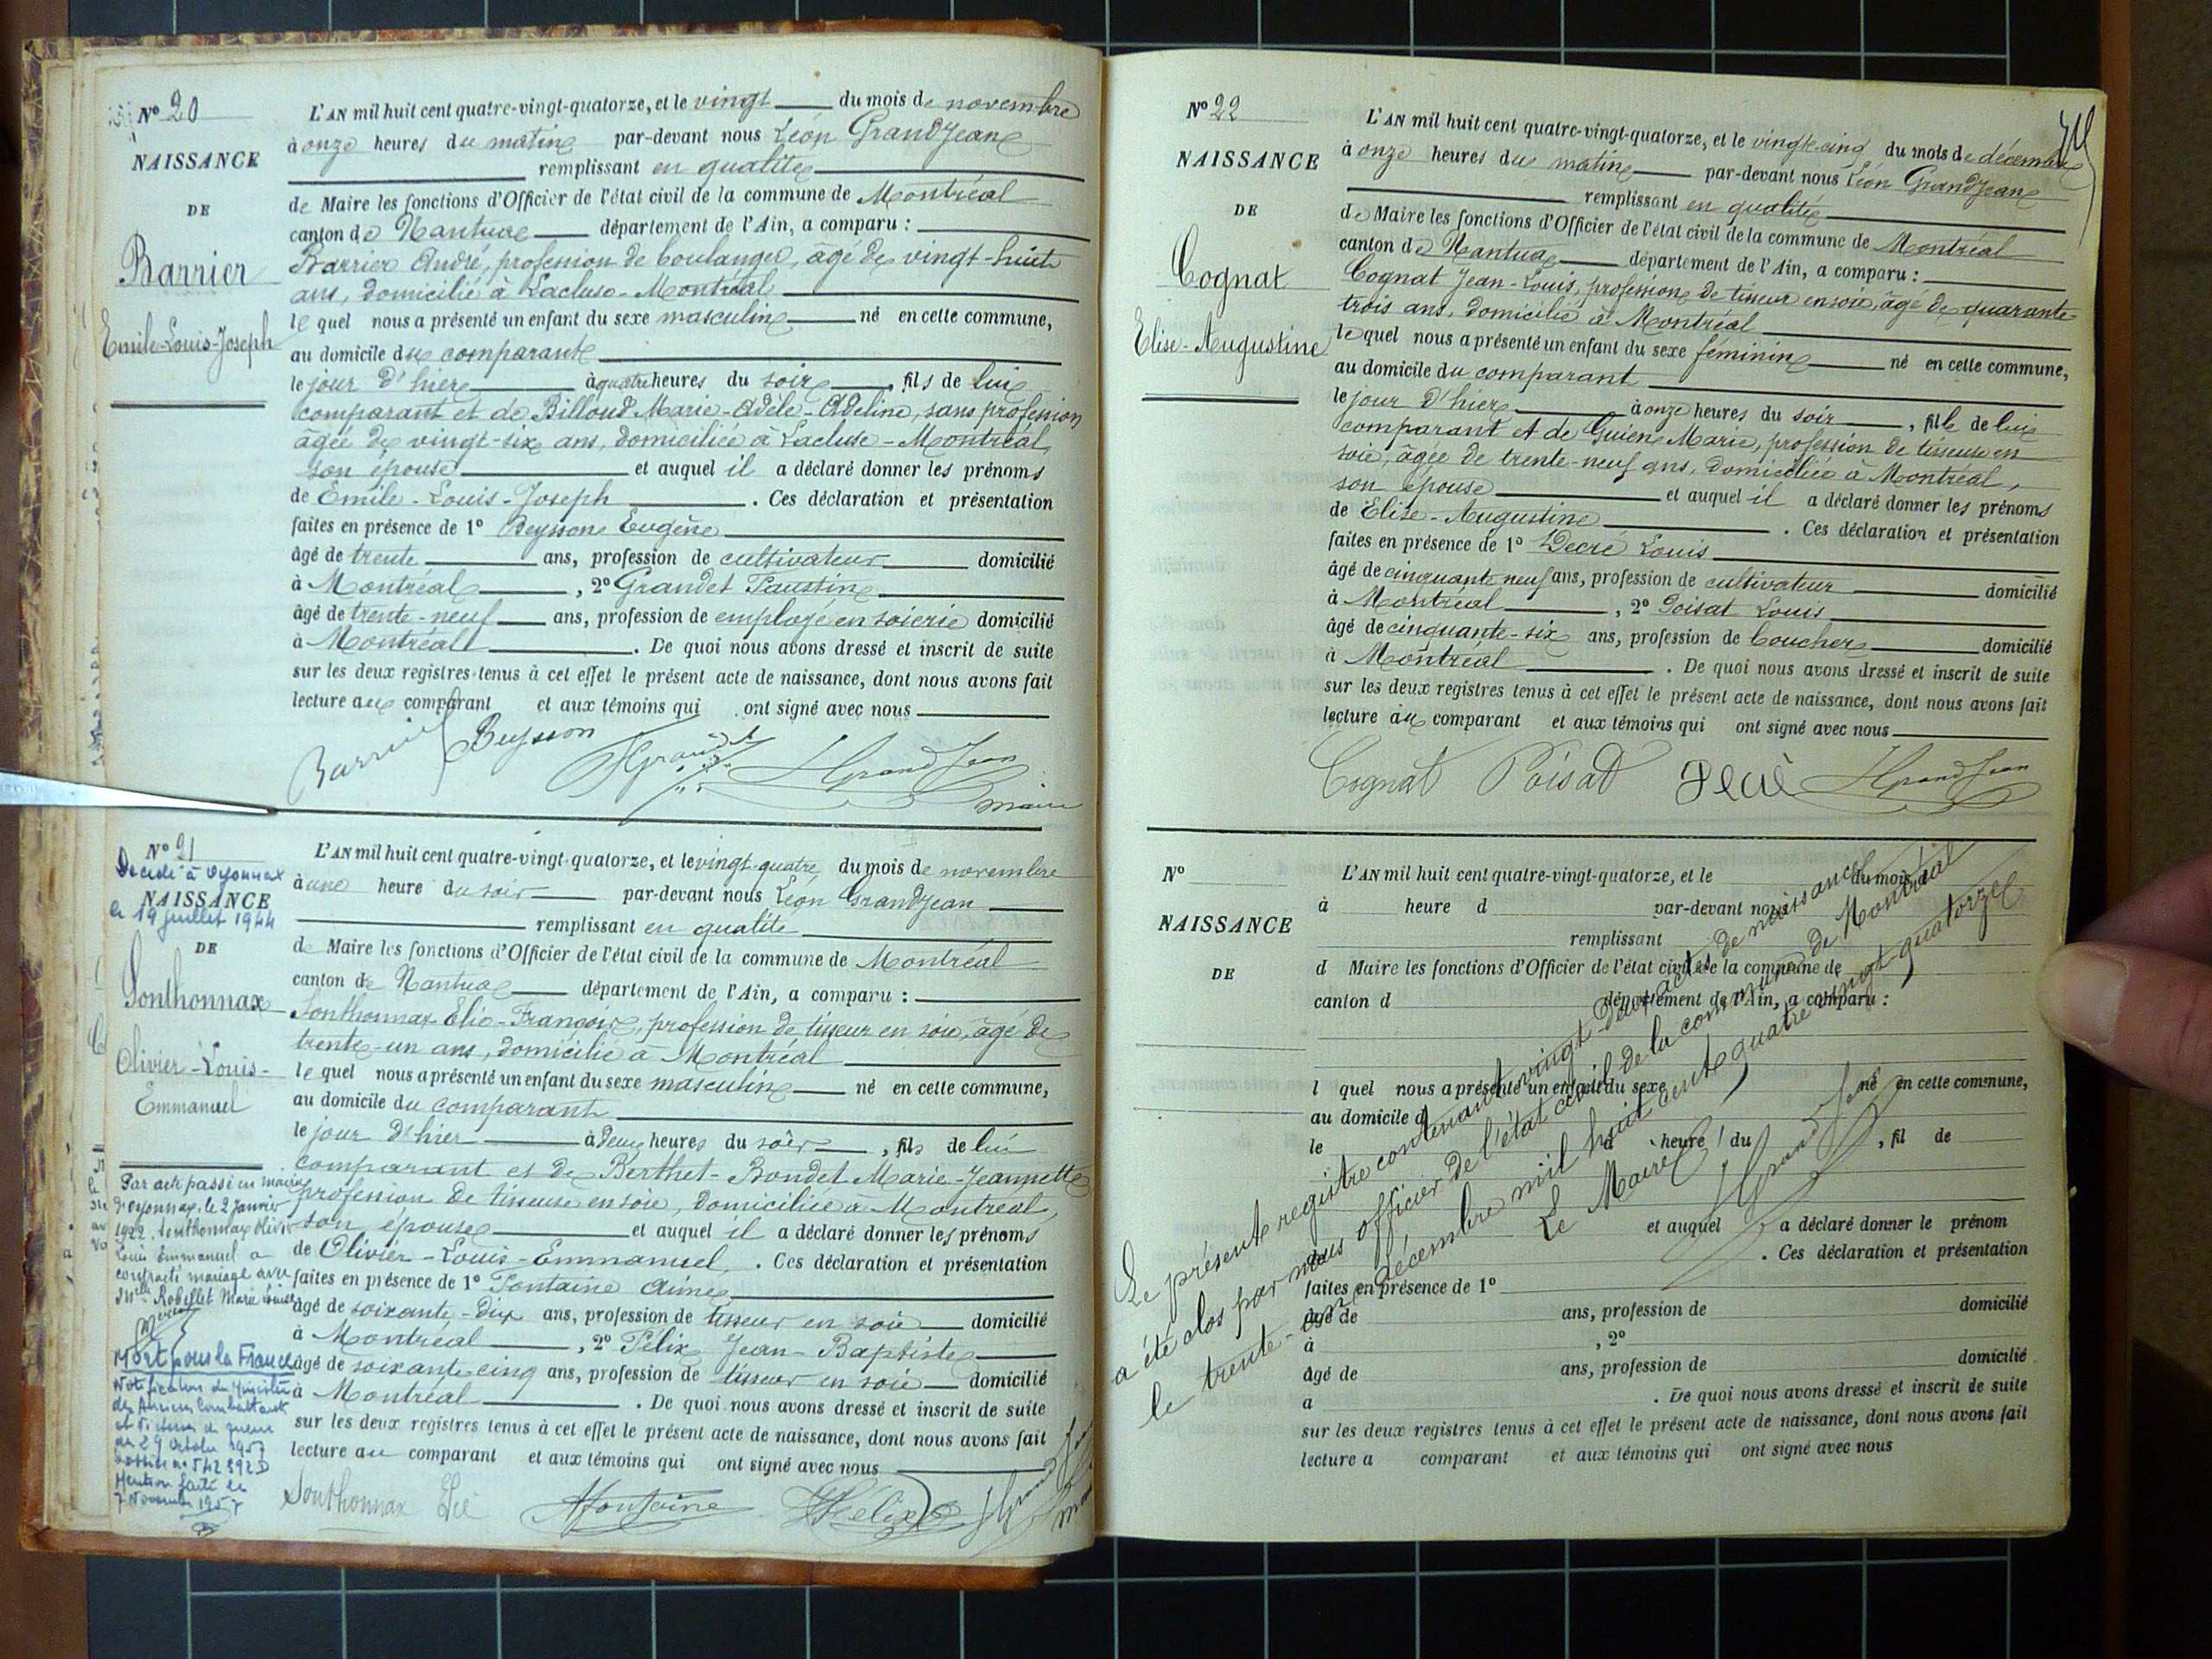 N° 20
NAISSANCE
DE
Barrier
Emile-Louis-Joseph
L'AN mil huit cent quatre-vingt-quatorze, et le vingt du mois de novembre
à onze heures du matin par-devant nous Léon Grandjean
remplissant en qualité
de Maire les fonctions d'Officier de l'état civil de la commune de Montréal
canton de Nantua département de l'Ain, a comparu :
Barrier André, profession de boulanger, âgé de vingt-huit
ans, domicilié à Lacluse-Montréal
lequel nous a présenté un enfant du sexe masculin né en cette commune,
au domicile du comparant
le jour d'hier à quatre heures du soir, fils de lui
comparant et de Billoud Marie-Adèle-Adeline, sans profession
âgée de vingt-six ans, domiciliée à Lacluse-Montréal,
son épouse et auquel il a déclaré donner les prénoms
de Emile-Louis-Joseph. Ces déclaration et présentation
faites en présence de 1° Beysson Eugène
âgé de trente ans, profession de cultivateur domicilié
à Montréal, 2° Grandet Faustin
âgé de trente-neuf ans, profession de employé en soierie domicilié
à Montréal. De quoi nous avons dressé et inscrit de suite
sur les deux registres tenus à cet effet le présent acte de naissance, dont nous avons fait
lecture au comparant et aux témoins qui ont signé avec nous
Barrier Beysson Grandet Grandjean
maire
N° 21
Décédé à Oyonnax
NAISSANCE
le 19 juillet 1944
DE
Sonthonnax
Olivier-Louis-
Emmanuel
Par acte passé en mairie
d'Oyonnax, le 2 Janvier
1922, Sonthonnax Olivier
Louis Emmanuel a
contracté mariage avec
Melle Robellet Marie Louise
Mort pour la France
Notification du Ministère
des Anciens Combattants
et Victimes de guerre
du 29 Octobre 1957
Mention faite le
7 Novembre 1957
L'AN mil huit cent quatre-vingt-quatorze, et le vingt-quatre du mois de novembre
à une heure du soir par-devant nous Léon Grandjean
remplissant en qualité
de Maire les fonctions d'Officier de l'état civil de la commune de Montréal
canton de Nantua département de l'Ain, a comparu :
Sonthonnax Elie-François, profession de tisseur en soie, âgé de
trente-un ans, domicilié à Montréal
lequel nous a présenté un enfant du sexe masculin né en cette commune,
au domicile du comparant
le jour d'hier à deux heures du soir, fils de lui
comparant et de Berthet-Bondet Marie-Jeannette
profession de tisseuse en soie, domiciliée à Montréal,
son épouse et auquel il a déclaré donner les prénoms
de Olivier-Louis-Emmanuel. Ces déclaration et présentation
faites en présence de 1° Fontaine Aimé
âgé de soixante-dix ans, profession de tisseur en soie domicilié
à Montréal, 2° Félix Jean-Baptiste
âgé de soixante cinq ans, profession de tisseur en soie domicilié
à Montréal. De quoi nous avons dressé et inscrit de suite
sur les deux registres tenus à cet effet le présent acte de naissance, dont nous avons fait
lecture au comparant et aux témoins qui ont signé avec nous
Sonthonnax Elie Fontaine Félix Grandjean
N° 22
NAISSANCE
DE
Cognat
Elise-Augustine
L'AN mil huit cent quatre-vingt-quatorze, et le vingt-cinq du mois de décembre
à onze heures du matin par-devant nous Léon Grandjean
remplissant en qualité
de Maire les fonctions d'Officier de l'état civil de la commune de Montréal
canton de Nantua département de l'Ain, a comparu :
Cognat Jean-Louis, profession de tisseur en soie, âgé de quarante-
trois ans, domicilié à Montréal
lequel nous a présenté un enfant du sexe féminin né en cette commune,
au domicile du comparant
le jour d'hier à onze heures du soir, fille de lui
comparant et de Marie, profession de tisseuse en
soie, âgée de trente-neuf ans, domiciliée à Montréal,
son épouse et auquel il a déclaré donner les prénoms
de Elise-Augustine. Ces déclaration et présentation
faites en présence de 1° Decré Louis
âgé de cinquante neuf ans, profession de cultivateur domicilié
à Montréal, 2° Poisat Louis
âgé de cinquante-six ans, profession de boucher domicilié
à Montréal. De quoi nous avons dressé et inscrit de suite
sur les deux registres tenus à cet effet le présent acte de naissance, dont nous avons fait
lecture au comparant et aux témoins qui ont signé avec nous
Cognat Poisat Decré Grandjean
N°
NAISSANCE
DE
L'AN mil huit cent quatre-vingt-quatorze, et le du mois d
à heure d par-devant nous
remplissant
d Maire les fonctions d'Officier de l'état civil de la commune de
canton d département de l'Ain, a comparu :
l quel nous a présenté un enfant du sexe né en cette commune,
au domicile d
le à heure du , fil de
et auquel a déclaré donner le prénom
de . Ces déclaration et présentation
faites en présence de 1°
âgé de ans, profession de domicilié
à , 2°
âgé de ans, profession de domicilié
à . De quoi nous avons dressé et inscrit de suite
sur les deux registres tenus à cet effet le présent acte de naissance, dont nous avons fait
lecture a comparant et aux témoins qui ont signé avec nous
Le présent registre contenant vingt-deux actes de naissance
a été clos par nous officier de l'état civil de la commune de Montréal
le trente-un décembre mil huit cent quatre vingt quatorze
Le Maire
Grandjean